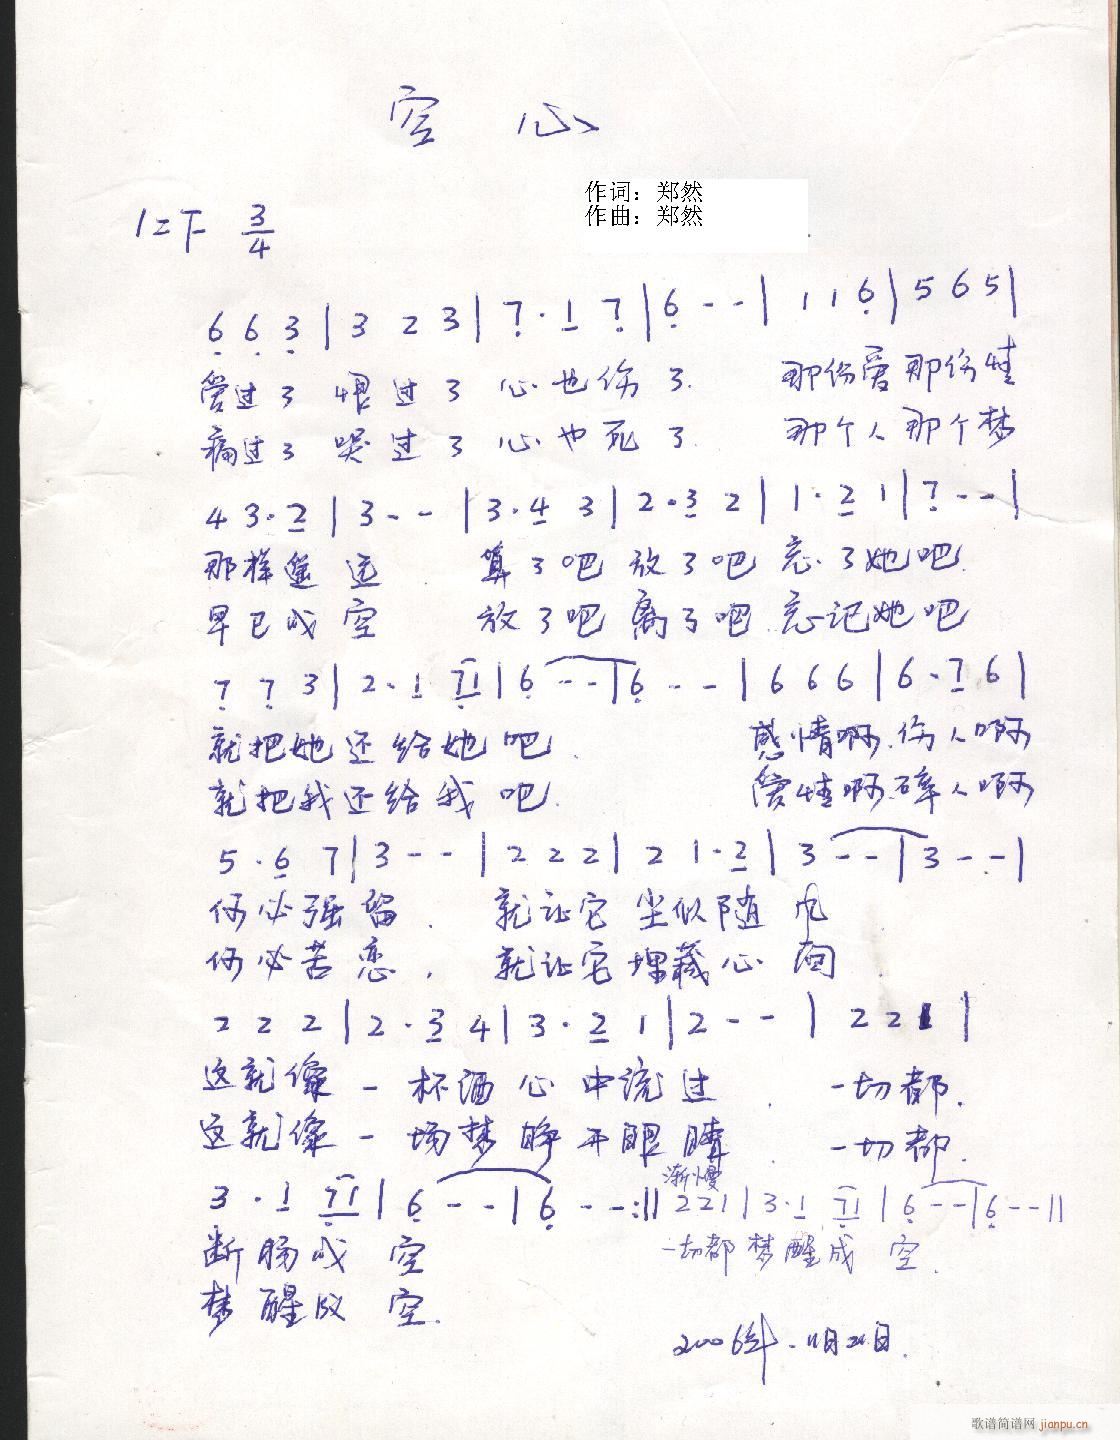 空 心
作词：郑然
作曲：郑然
1=F 3/4
6 6 3 | 3 2 3 | 7 · 1 7 | 6 - - | 1 1 6 | 5 6 5 |
爱过了 恨过了 心也伤了. 那份爱那份情
痛过了 哭过了 心也死了. 那个人那个梦
4 3 · 2 | 3 - - | 3 · 4 3 | 2 · 3 2 | 1 · 2 1 | 7 - - |
那样遥远. 算了吧 放了吧 忘了她吧.
早已成空 放了吧 离了吧 忘记她吧
7 7 3 | 2 · 1 7 1 | 6 - - | 6 - - | 6 6 6 | 6 · 7 6 |
就把她还给她吧. 感情啊.伤人啊
就把我还给我吧. 爱情啊.碎人啊
5 · 6 7 | 3 - - | 2 2 2 | 2 1 · 2 | 3 - - | 3 - - |
何必强留. 就让它尘似随风
何必苦恋. 就让它埋藏心间.
2 2 2 | 2 · 3 4 | 3 · 2 1 | 2 - - | 2 2 1 |
这就像一杯酒心中流过. 一切都.
这就像一场梦睁开眼睛. 一切都.
渐慢
3 · 1 7 1 | 6 - - | 6 - - :|| 2 2 1 | 3 · 1 7 1 | 6 - - | 6 - - ||
断肠成空 一切都梦醒成空.
梦醒成空.
2006年.11月21日.
歌谱简谱网 jianpu.cn